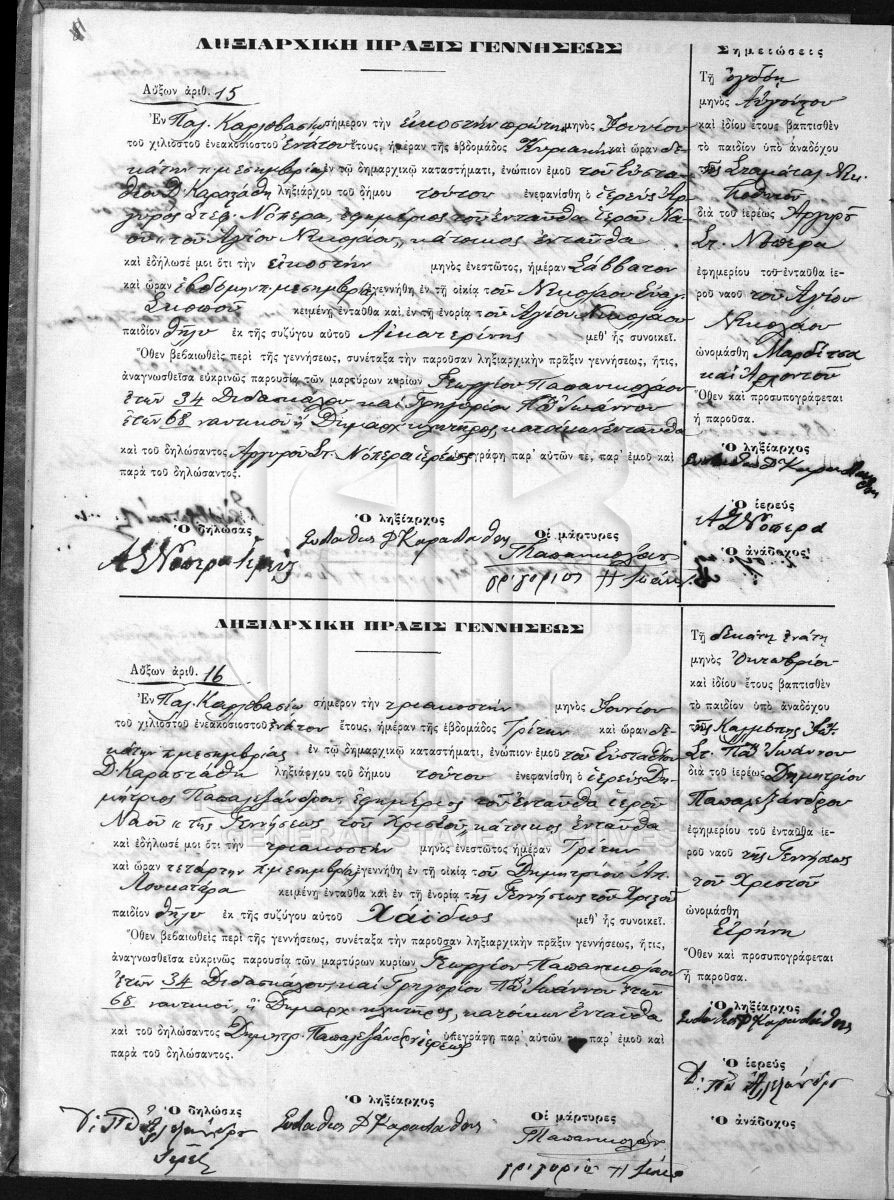 ΛΗΞΙΑΡΧΙΚΗ ΠΡΑΞΙΣ ΓΕΝΝΗΣΕΩΣ
Αὔξων ἀριθ. 15
Ἐν Παλ. Καρλοβασίῳ σήμερον τὴν εἰκοστὴν πρώτην μηνὸς Ἰουνίου
τοῦ χιλιοστοῦ ἐνεακοσιοστοῦ ἐνάτου ἔτους, ἡμέραν τῆς ἑβδομάδος Κυριακὴν καὶ ὥραν δε-
κάτην π. μεσημβρίας ἐν τῷ δημαρχικῷ καταστήματι, ἐνώπιον ἐμοῦ τοῦ Εὐστα-
θίου Δ. Καραστάθη ληξιάρχου τοῦ δήμου τούτου ἐνεφανίσθη ὁ ἱερεὺς Ἀρ-
γυρὸς Στεφ. Νόπερα, ἐφημέριος τοῦ ἐνταῦθα ἱεροῦ Να-
οῦ "τοῦ Ἁγίου Νικολάου", κάτοικος ἐνταῦθα
καὶ ἐδήλωσέ μοι ὅτι τὴν εἰκοστὴν μηνὸς ἐνεστῶτος, ἡμέραν Σάββατον
καὶ ὥραν ἑβδόμην π. μεσημβρίας ἐγεννήθη ἐν τῇ οἰκίᾳ τοῦ Νικολάου Εὐαγ.
κειμένῃ ἐνταῦθα καὶ ἐν τῇ ἐνορίᾳ τοῦ Ἁγίου Νικολάου
παιδίον θῆλυ ἐκ τῆς συζύγου αὐτοῦ Αἰκατερίνης μεθ' ἧς συνοικεῖ.
Ὅθεν βεβαιωθεὶς περὶ τῆς γεννήσεως, συνέταξα τὴν παροῦσαν ληξιαρχικὴν πρᾶξιν γεννήσεως, ἥτις,
ἀναγνωσθεῖσα εὐκρινῶς παρουσίᾳ τῶν μαρτύρων κυρίων Γεωργίου Παπανικολάου
ἐτῶν 34 Διδασκάλου καὶ Γρηγορίου Πᾶ Ἰωάννου
ἐτῶν 68 ναυτικοῦ ἢ Δημαρχ. κλητῆρος, κατοίκων ἐνταῦθα
καὶ τοῦ δηλώσαντος Ἀργυροῦ Στ. Νόπερα ἱερέως ὑπεγράφη παρ' αὐτῶν τε, παρ' ἐμοῦ καὶ
παρὰ τοῦ δηλώσαντος.
Ὁ δηλώσας
Ὁ ληξίαρχος
Οἱ μάρτυρες
Α Σ Νοπερα Ιερεύς
Ευσταθιος Δ Καρασταθης
Γ Παπανικολάου
γριγοριος Π Ιωάν.
Σημειώσεις
Τῇ ὀγδόῃ
μηνὸς Αὐγούστου
καὶ ἰδίου ἔτους βαπτισθὲν
τὸ παιδίον ὑπὸ ἀναδόχου
τῆς Σταμάτας Νικ.
διὰ τοῦ ἱερέως Ἀργυροῦ
Στ. Νόπερα
ἐφημερίου τοῦ ἐνταῦθα ἱε-
ροῦ ναοῦ τοῦ Ἁγίου
Νικολάου
ὠνομάσθη Μαρδίτσα
καὶ Ἀρχοντοῦ
Ὅθεν καὶ προσυπογράφεται
ἡ παροῦσα.
Ὁ ληξίαρχος
Ευσταθιος Δ Καρασταθης
Ὁ ἱερεύς
Α Σ Νοπερα
Ὁ ἀνάδοχος
ΛΗΞΙΑΡΧΙΚΗ ΠΡΑΞΙΣ ΓΕΝΝΗΣΕΩΣ
Αὔξων ἀριθ. 16
Ἐν Παλ. Καρλοβασίῳ σήμερον τὴν τριακοστὴν μηνὸς Ἰουνίου
τοῦ χιλιοστοῦ ἐνεακοσιοστοῦ ἐνάτου ἔτους, ἡμέραν τῆς ἑβδομάδος Τρίτην καὶ ὥραν δε-
κάτην π. μεσημβρίας ἐν τῷ δημαρχικῷ καταστήματι, ἐνώπιον ἐμοῦ τοῦ Εὐσταθίου
Δ. Καραστάθη ληξιάρχου τοῦ δήμου τούτου ἐνεφανίσθη ὁ ἱερεὺς Δη-
μήτριος Παπαλεξάνδρου, ἐφημέριος τοῦ ἐνταῦθα ἱεροῦ
Ναοῦ "τῆς Γεννήσεως τοῦ Χριστοῦ", κάτοικος ἐνταῦθα
καὶ ἐδήλωσέ μοι ὅτι τὴν τριακοστὴν μηνὸς ἐνεστῶτος ἡμέραν Τρίτην
καὶ ὥραν τετάρτην π. μεσημβρίας ἐγεννήθη ἐν τῇ οἰκίᾳ τοῦ Δημητρίου Ἀπ.
Λουκατάρα κειμένῃ ἐνταῦθα καὶ ἐν τῇ ἐνορίᾳ τῆς Γεννήσεως τοῦ Χριστοῦ
παιδίον θῆλυ ἐκ τῆς συζύγου αὐτοῦ Χάϊδως μεθ' ἧς συνοικεῖ.
Ὅθεν βεβαιωθεὶς περὶ τῆς γεννήσεως, συνέταξα τὴν παροῦσαν ληξιαρχικὴν πρᾶξιν γεννήσεως, ἥτις,
ἀναγνωσθεῖσα εὐκρινῶς παρουσίᾳ τῶν μαρτύρων κυρίων Γεωργίου Παπανικολάου
ἐτῶν 34 Διδασκάλου καὶ Γρηγορίου Πᾶ Ἰωάννου ἐτῶν
68 ναυτικοῦ, ἢ Δημαρχ. κλητῆρος, κατοίκων ἐνταῦθα
καὶ τοῦ δηλώσαντος Δημητρ. Παπαλεξάνδρου ἱερέως ὑπεγράφη παρ' αὐτῶν τε παρ' ἐμοῦ καὶ
παρὰ τοῦ δηλώσαντος.
Ὁ δηλώσας
Ὁ ληξίαρχος
Οἱ μάρτυρες
Ευσταθιος Δ Καρασταθης
Γ Παπανικολάου
γριγοριος Π Ιωάν
Τῇ δεκάτῃ ἐνάτῃ
μηνὸς Ὀκτωβρίου
καὶ ἰδίου ἔτους βαπτισθὲν
τὸ παιδίον ὑπὸ ἀναδόχου
Στ. Πᾶ Ἰωάννου
διὰ τοῦ ἱερέως Δημητρίου
Παπαλεξάνδρου
ἐφημερίου τοῦ ἐνταῦθα ἱε-
ροῦ ναοῦ τῆς Γεννήσεως
τοῦ Χριστοῦ
ὠνομάσθη
Εἰρήνη
Ὅθεν καὶ προσυπογράφεται
ἡ παροῦσα.
Ὁ ληξίαρχος
Ευσταθιος Δ Καρασταθης
Ὁ ἱερεύς
Ὁ ἀνάδοχος